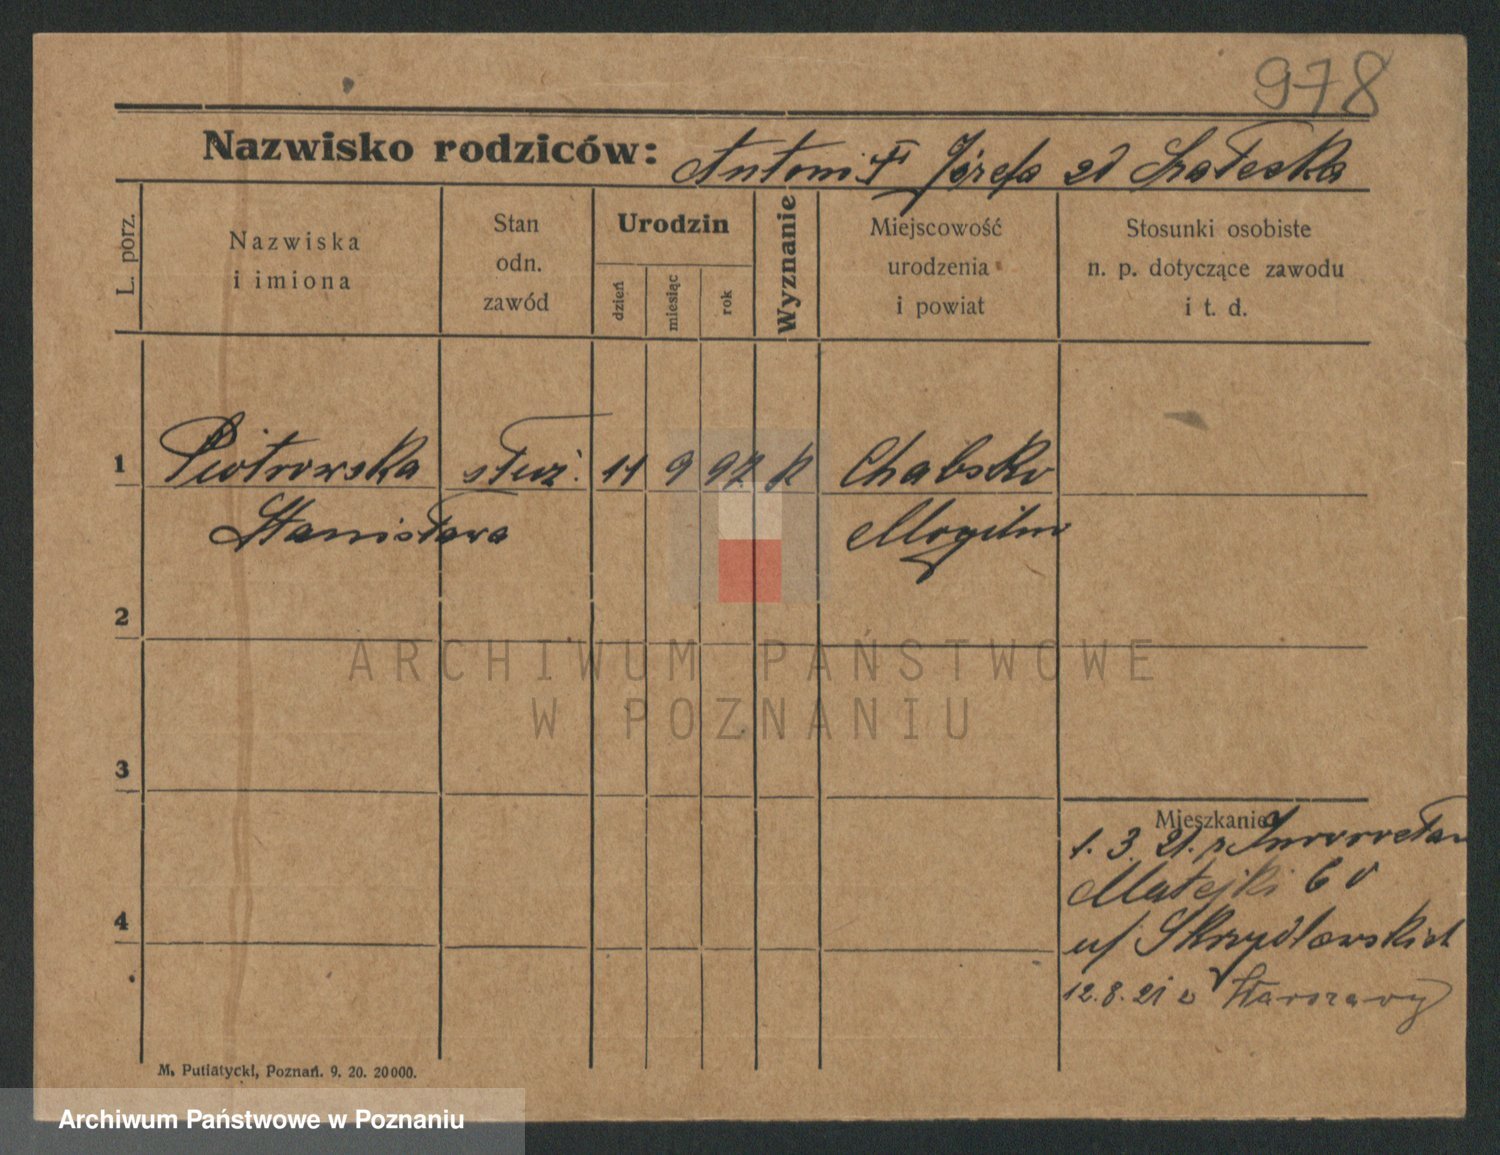 978
Nazwisko rodziców: Antoni Józefa
L. porz.
Nazwiska
i imiona
Stan
odn.
zawód
Urodzin
dzień
miesiąc
rok
Wyznanie
Miejscowość
urodzenia
i powiat
Stosunki osobiste
n. p. dotyczące zawodu
i t. d.
1 Piotrowska służ. 11 9 97 k Chabsko
Stanisława Mogilno
2
ARCHIWUM PAŃSTWOWE
W POZNANIU
3
Mieszkanie
1. 3. 21. Inowrocław
Matejki 6
4
u/ Skrzydlewskich
12.8.21 Warszawy
M. Putiatycki, Poznań. 9. 20. 20000.
Archiwum Państwowe w Poznaniu